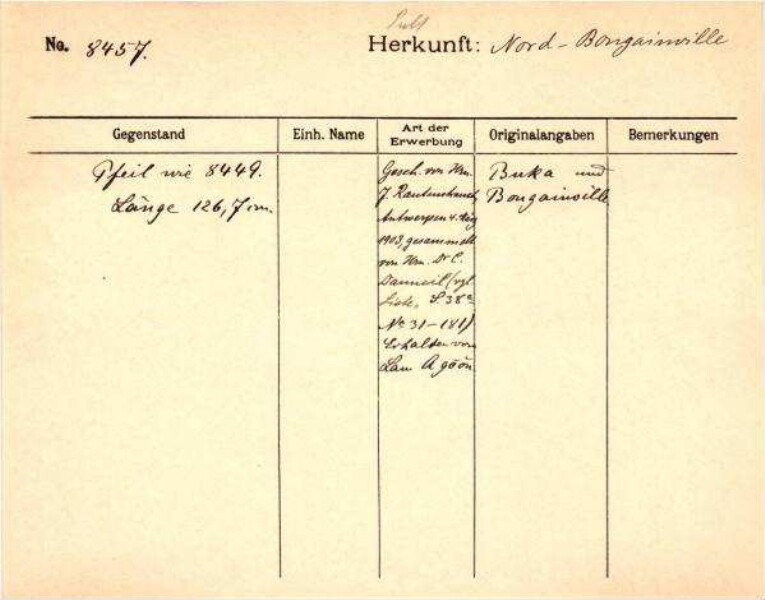 No. 8457.
Herkunft: Nord-Bougainville
Gegenstand
Einh. Name
Art der Erwerbung
Originalangaben
Bemerkungen
Pfeil wie 8449.
Länge 126,7 cm.
Gesch. von Hrn.
J. Rautenstrauch
Antwerpen 4. Aug
1903, gesammelt
von Hrn. Dr C.
(vgl.
Liste, S. 38a
No 31-181)
Erhalten von
Lau
Buka und
Bougainville